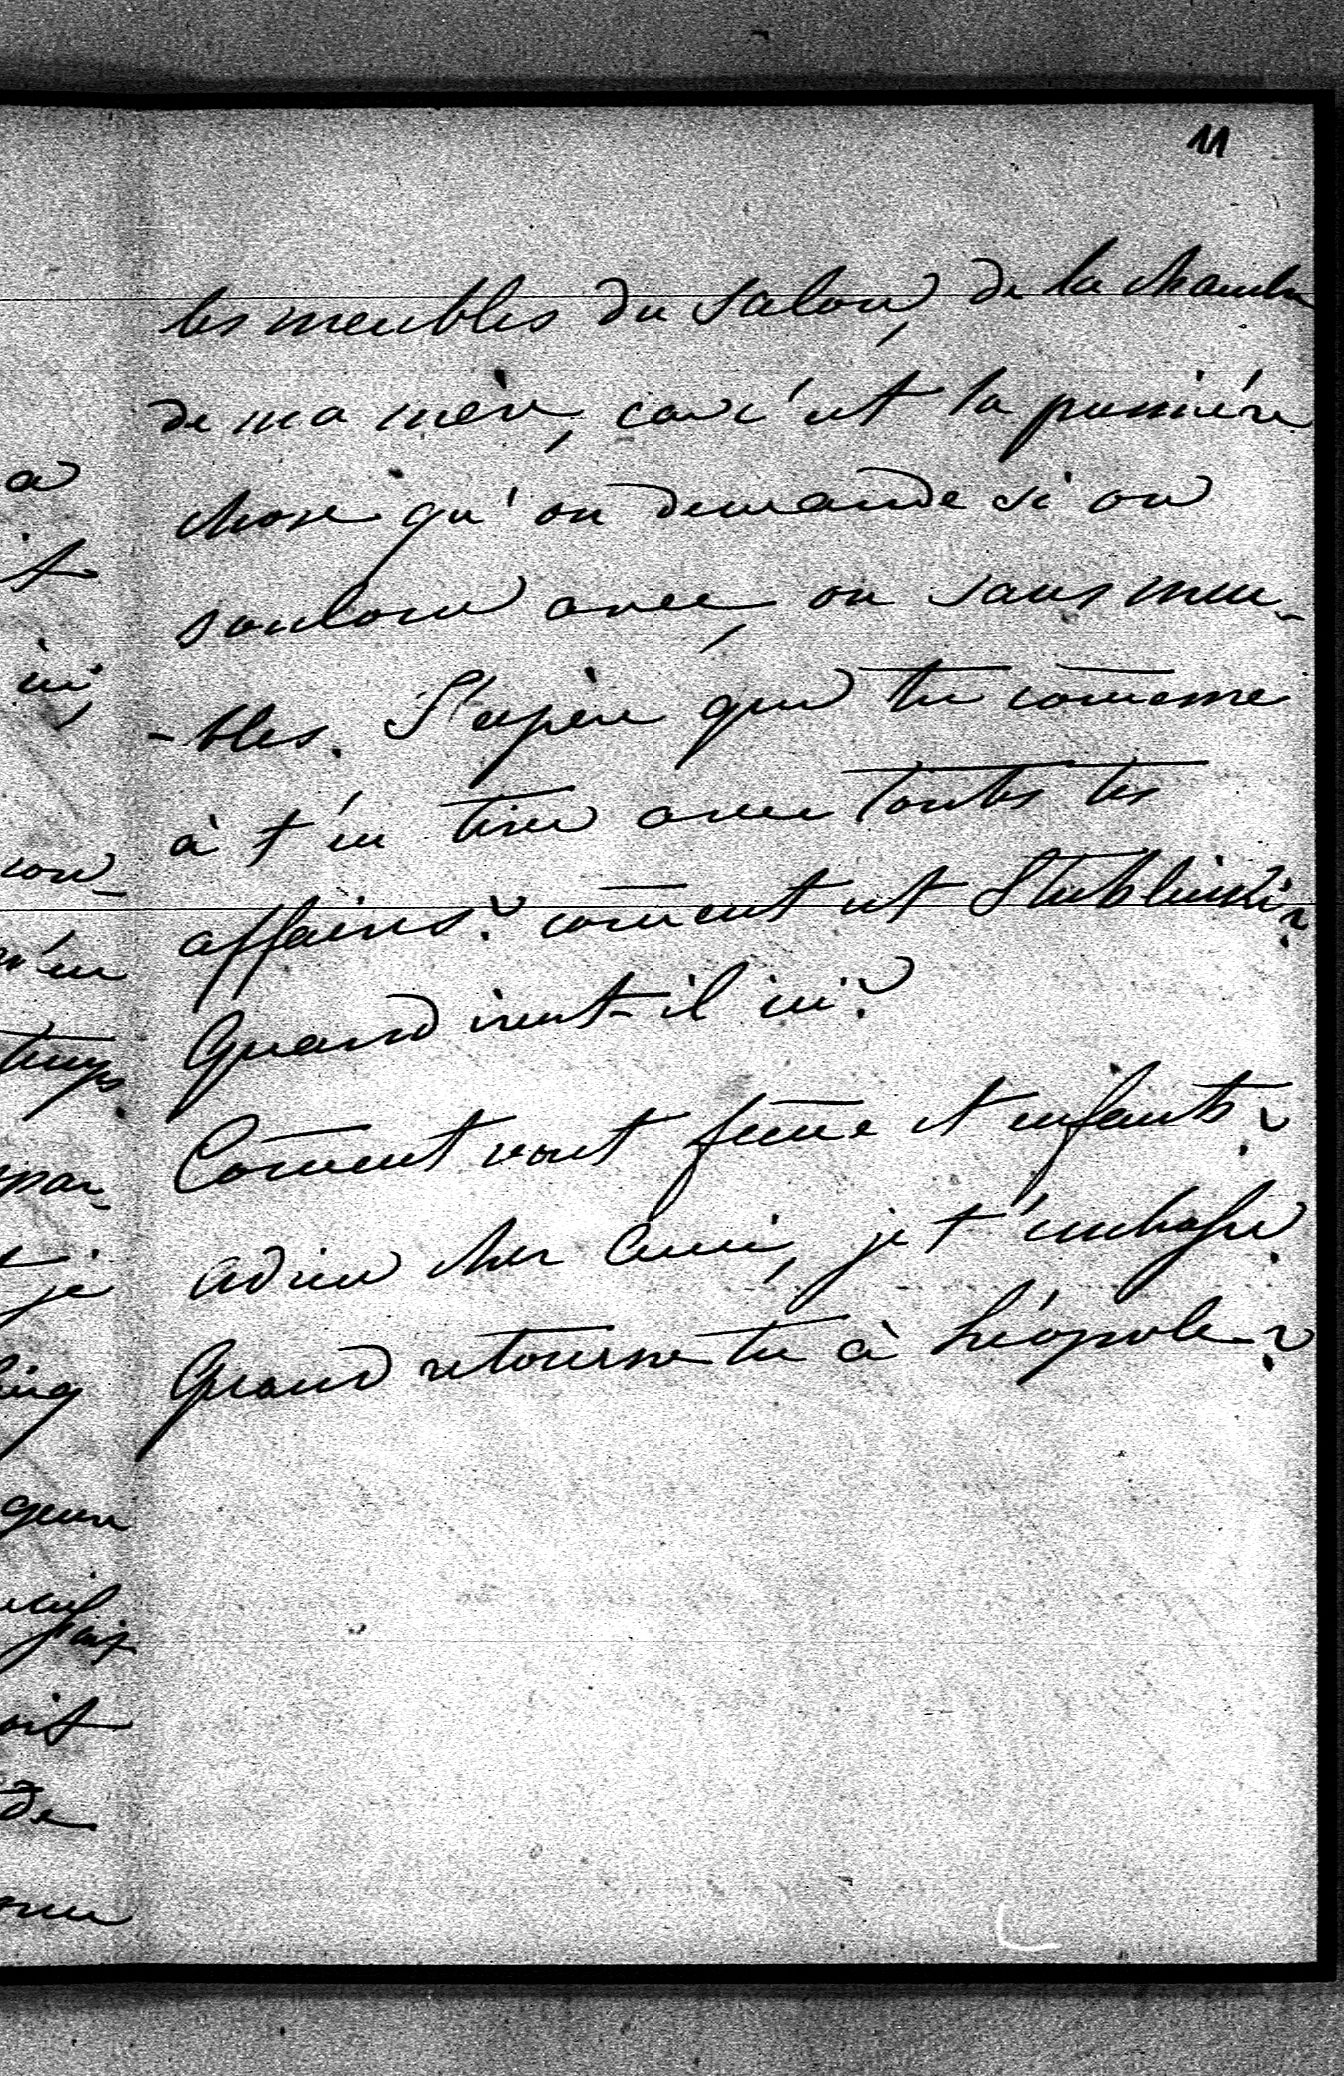 11
les meubles du salon, de la chambre
de ma mère, car c'est la première
chose qu'on demande si on
souloue avec, ou sans meu-
-bles. J'espère que tu com̄ence
à t'en tirer avec toutes tes
affaires? com̄ent est Stublinski?
Quand vient-il ici?
Com̄ent vont fem̄e et enfants?
adieu cher Ami, je t'embasse.
Quand retourne tu à Léopole?
a
t
ici,
con-
m'en
temps
par-
je
quer
fait
oit
de